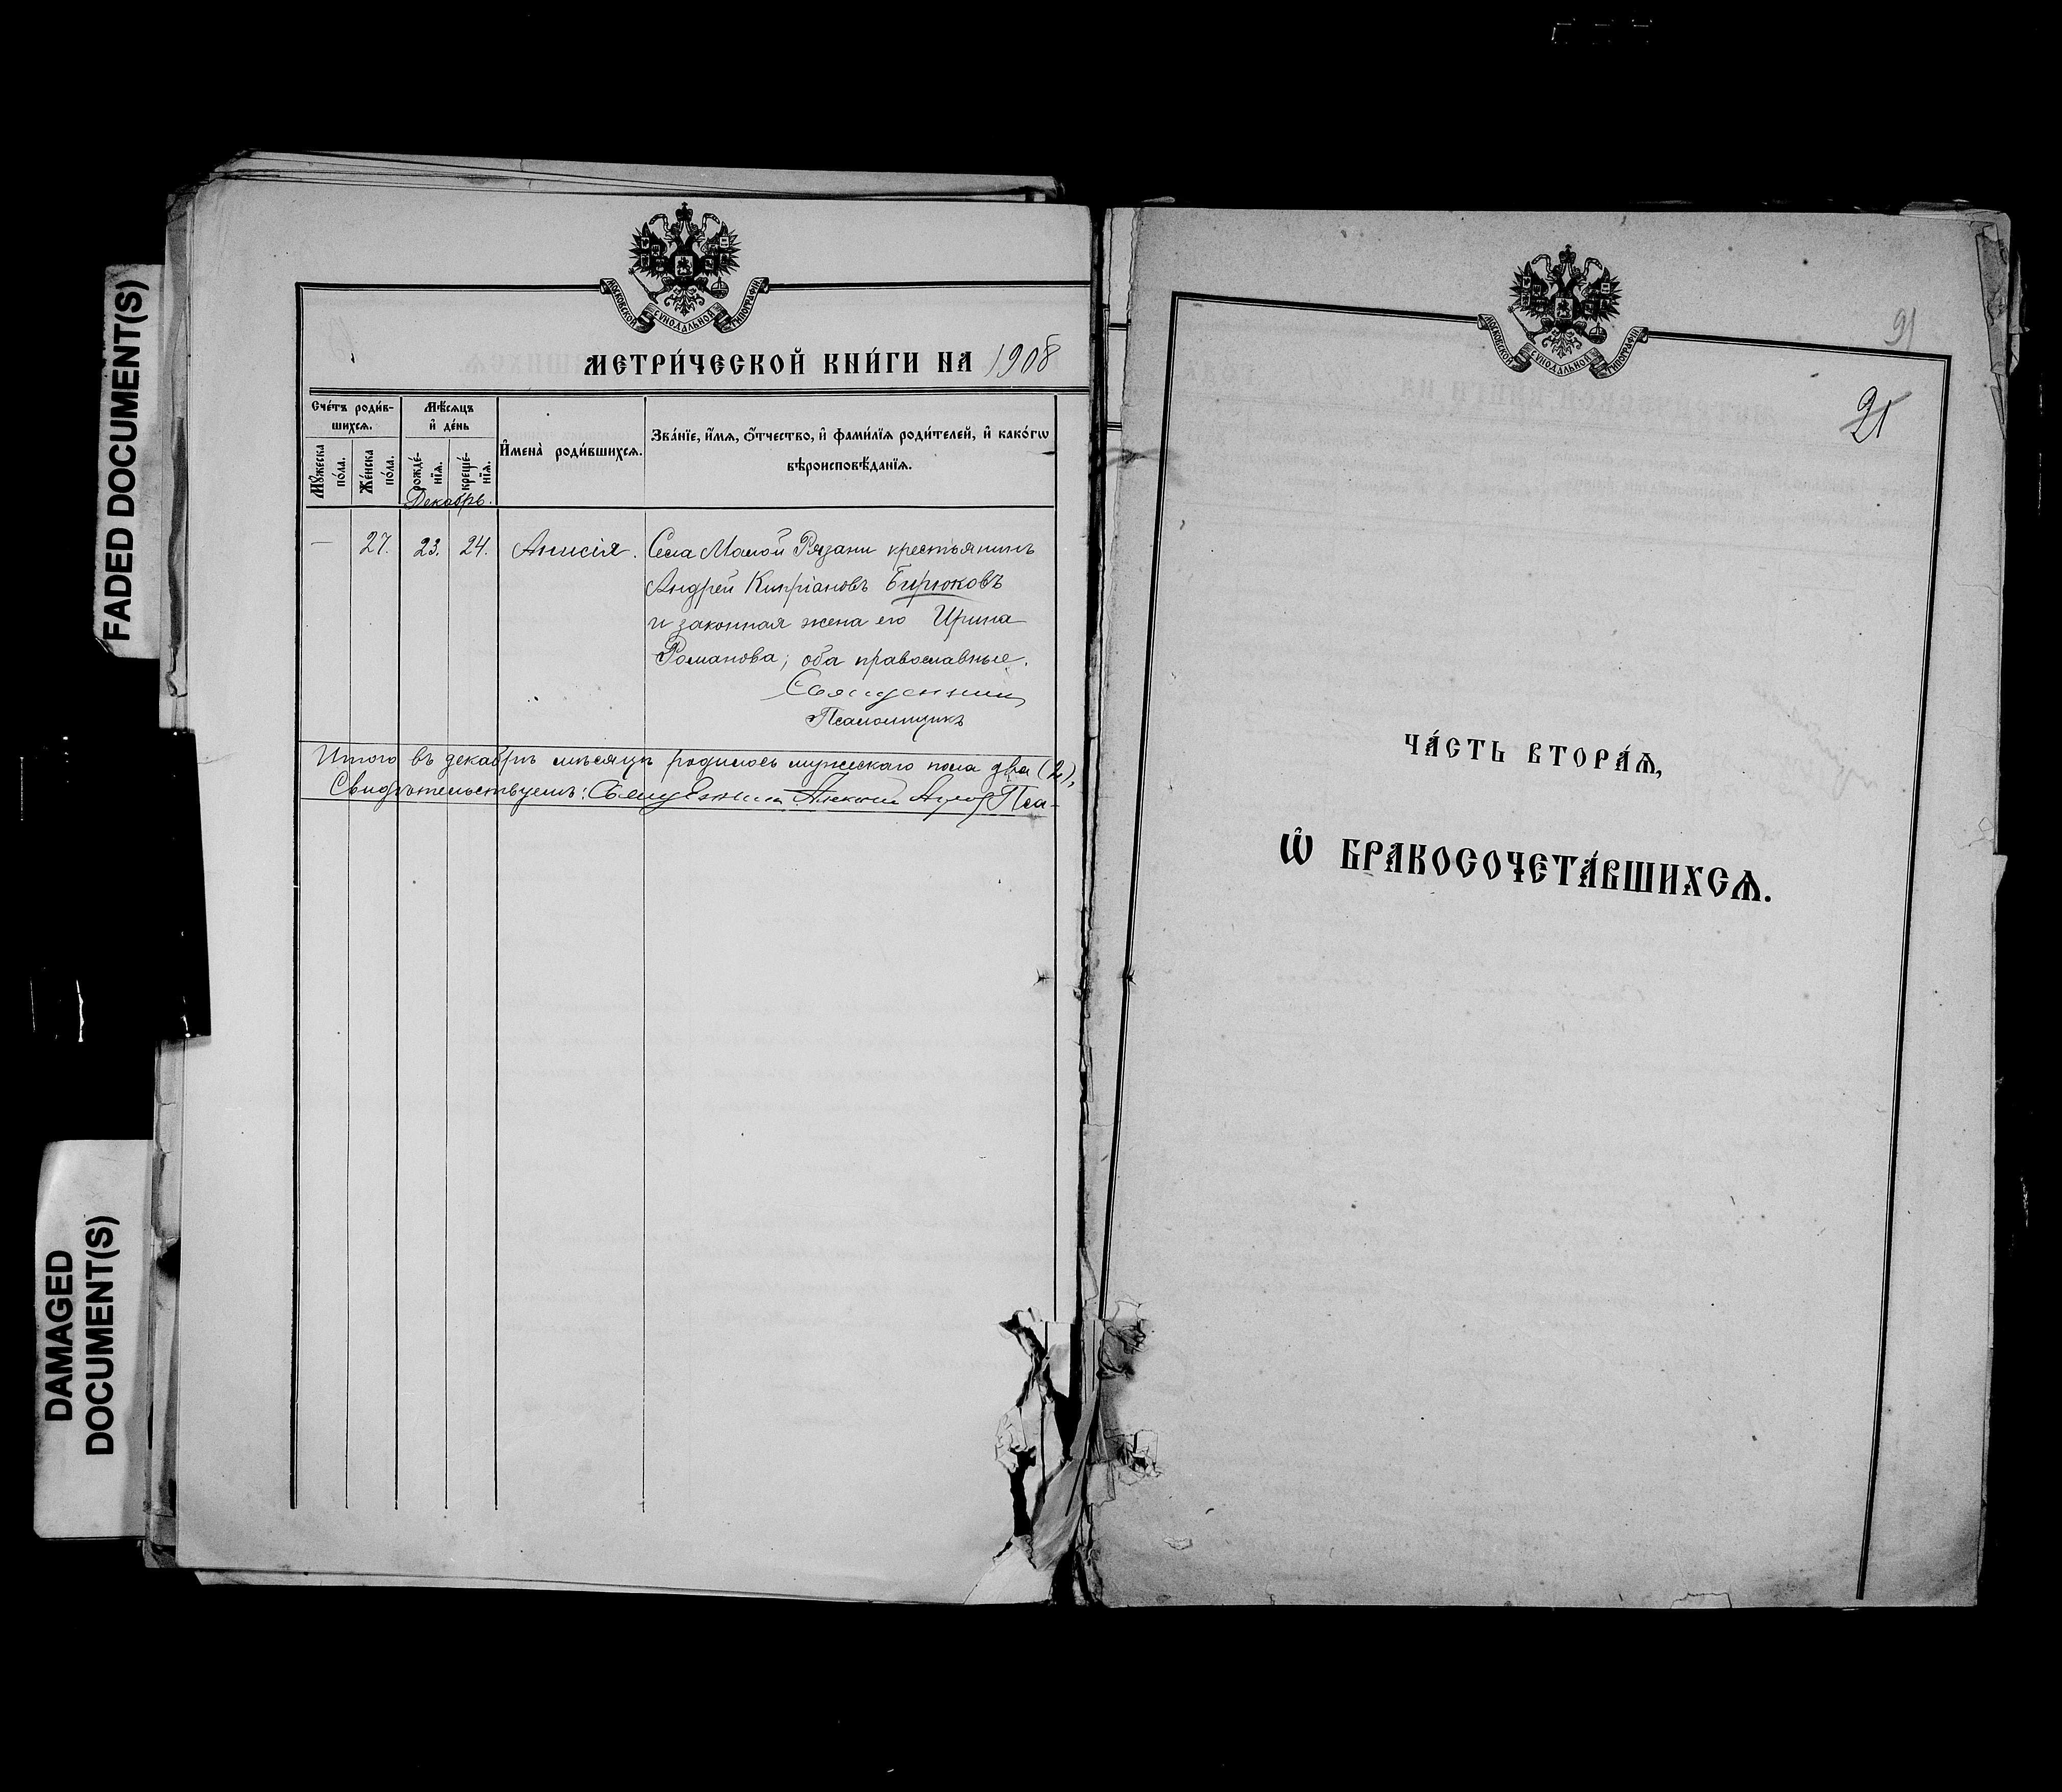 FADED DOCUMENT(S)
DAMAGED
DOCUMENT(S)
МОСКОВСКОЙ СѴНОДАЛЬНОЙ ТИПОГРАФІИ
МЕТРИ́ЧЕСКОЙ КНИ́ГИ НА 1908
Сче́тъ роди́в-
шихсѧ.
Мѣ́сѧцъ
и҆ де́нь
Мꙋ́жеска
по́ла.
Же́нска
по́ла.
рожде́-
нїѧ.
креще́-
нїѧ.
И҆мена̀ роди́вшихсѧ.
Зва́нїе, и҆́мѧ, ѻ҆́тчество, и҆ фами́лїѧ роди́телей, и҆ како́гѡ
вѣроисповѣ́данїѧ.
Декабрь.
— 27. 23. 24. Анисія. Села Малой Рязани крестьянинъ
Андрей Кипріановъ Бирюковъ
и законная жена его Ирина
Романова; оба православные.
Священникъ
Псаломщикъ
Итого въ декабрѣ мѣсяцѣ родилось мужескаго пола два (2),
Свидѣтельствуемъ: Священникъ Алексій Пса-
МОСКОВСКОЙ СѴНОДАЛЬНОЙ ТИПОГРАФІИ
91
21
ЧА́СТЬ ВТОРА́Ѧ,
Ѡ҆ БРАКОСОЧЕТА́ВШИХСѦ.